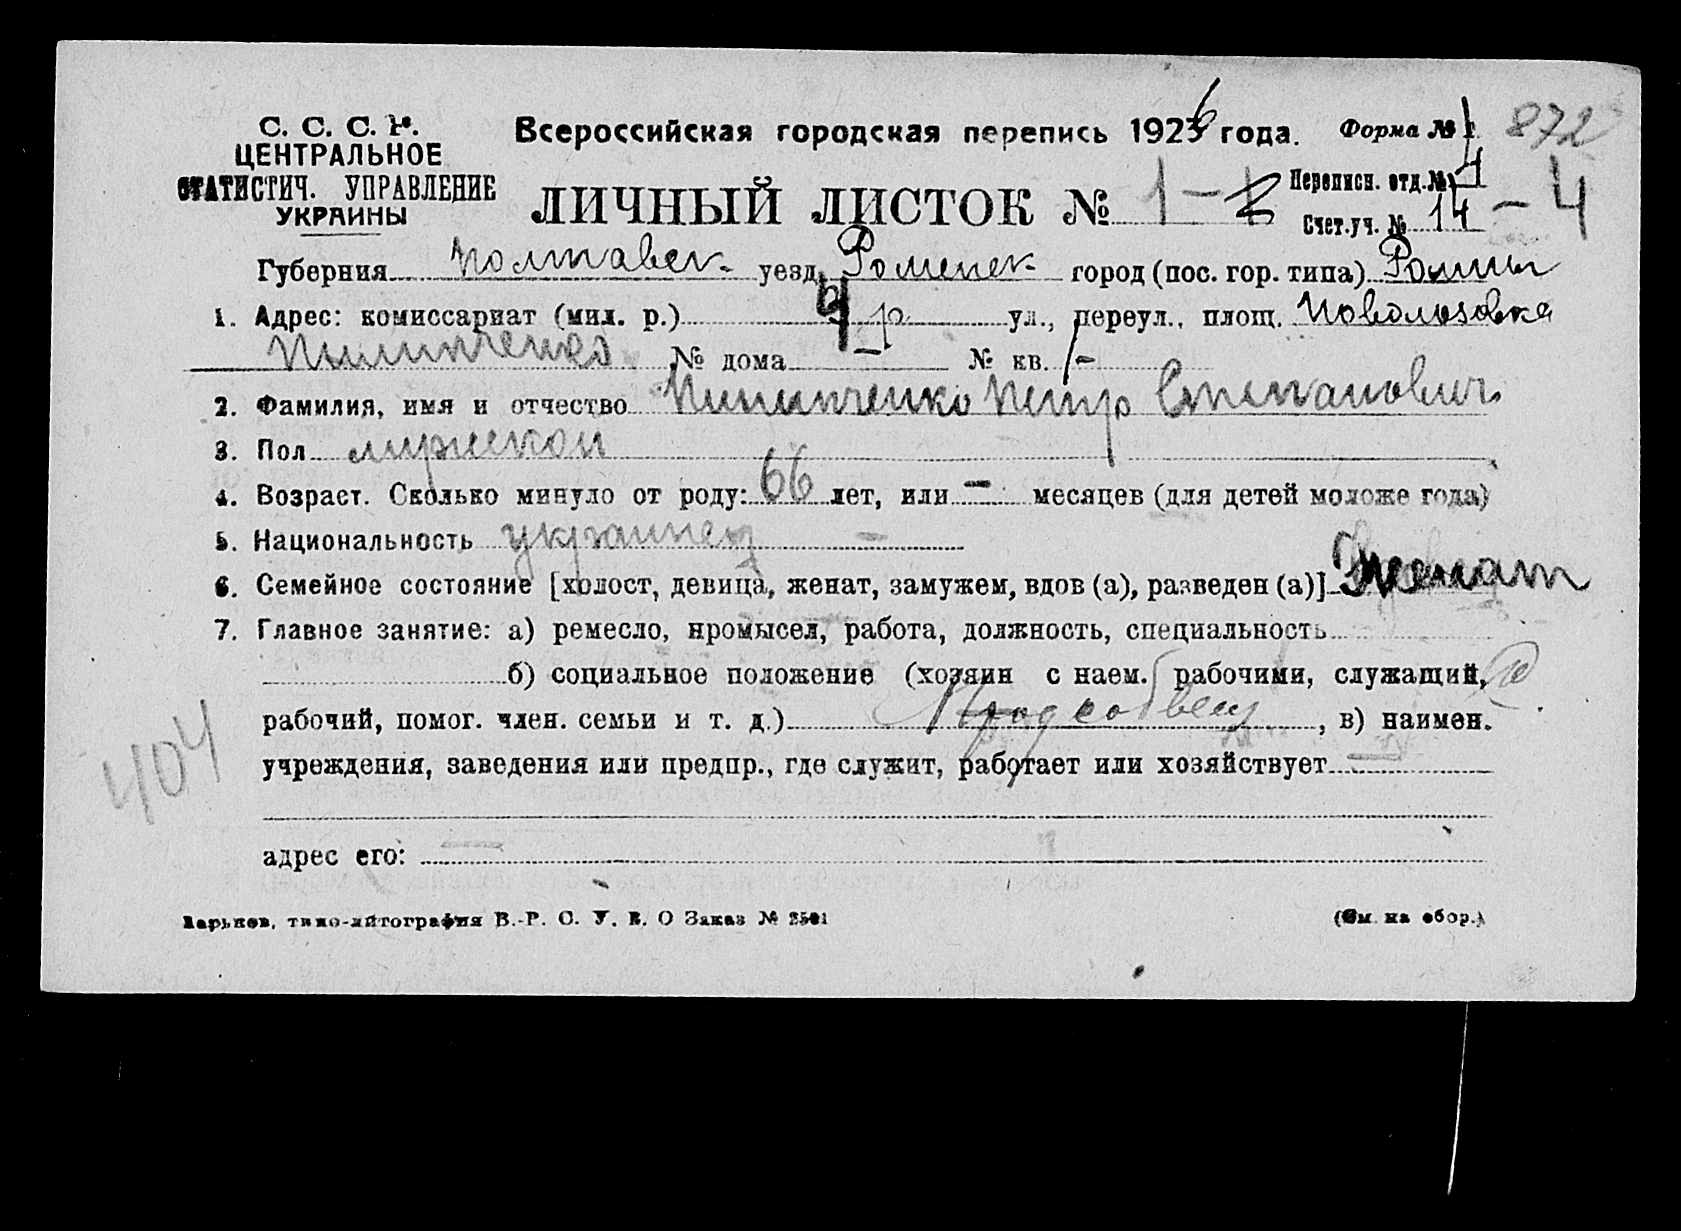 С. С. С. Р.
ЦЕНТРАЛЬНОЕ
СТАТИСТИЧ. УПРАВЛЕНИЕ
УКРАИНЫ
Всероссийская городская перепись 1926 года. Форма № 1 872
ЛИЧНЫЙ ЛИСТОК № 1-2
Переписн. отд. № 4
Счет.уч. № 14 - 4
Губерния Полтавск. уезд Роменск город (пос. гор. типа) Ромны
1. Адрес: комиссариат (мил. р.) 4 р ул., переул., площ. Новолозовка
Пилипченко № дома — № кв. -
2. Фамилия, имя и отчество Пилипченко Петр Степанович
3. Пол мужской
4. Возраст. Сколько минуло от роду: 66 лет, или — месяцев (для детей моложе года)
5. Национальность украинец
6. Семейное состояние [холост, девица, женат, замужем, вдов (а), разведен (а)] женат
7. Главное занятие: а) ремесло, промысел, работа, должность, специальность
б) социальное положение (хозяин с наем. рабочими, служащий,
рабочий, помог. член. семьи и т. д.) , в) наимен.
учреждения, заведения или предпр., где служит, работает или хозяйствует —
адрес его: —
404
Харьков, типо-литография В.-Р. С. У. В. О Заказ № 2501
(См. на обор.)